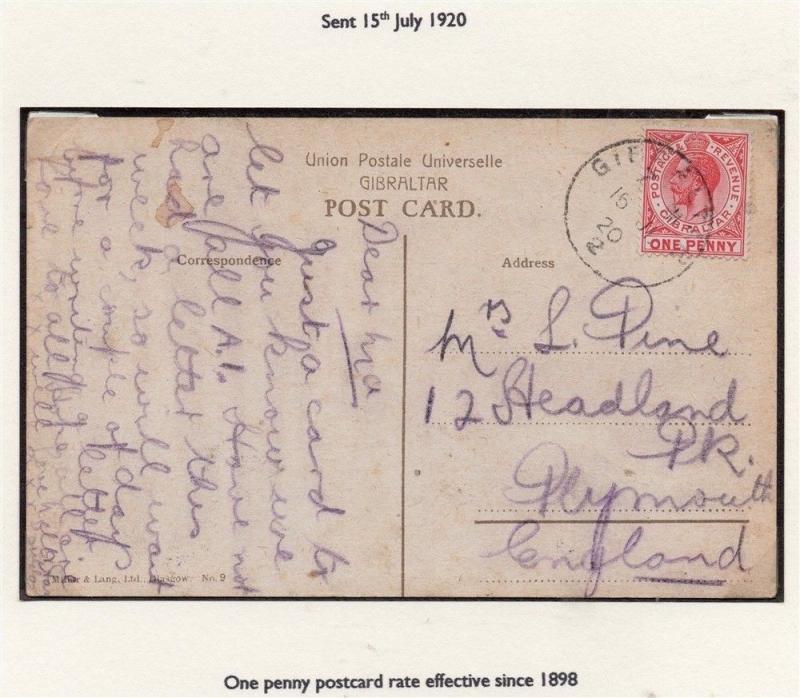 Sent 15th July 1920
Union Postale Universelle
GIBRALTAR
POST CARD.
Correspondence
Address
POSTAGE & REVENUE
GIBRALTAR
ONE PENNY
20
Dear Ma
Just a card to
let you know we
are all A.1. Have not
had a letter this
week, so will wait
for a couple of days
before writing a letter
love to all
Mrs L. Pine
12 Headland
Pk.
Plymouth
England
Miller & Lang, Ltd., Glasgow No. 9
One penny postcard rate effective since 1898